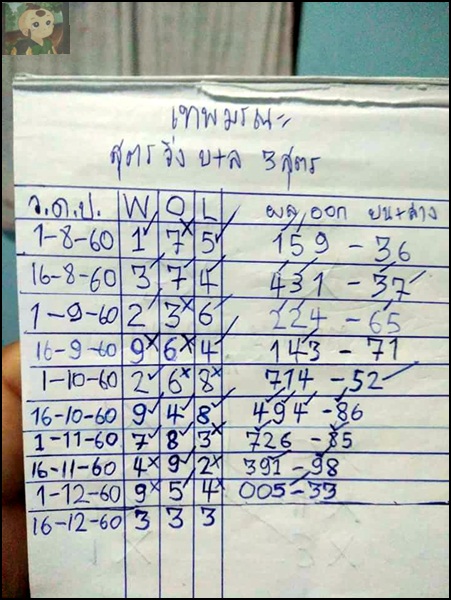 เทพมรณะ
สูตร วิ่ง บ+ล 3 สูตร
ว.ด.ป. W O L ผล ออก บน+ล่าง
1-8-60 1✓ 7× 5✓ 159 - 36
16-8-60 3✓ 7✓ 4✓ 431 - 37
1-9-60 2✓ 3× 6✓ 224 - 65
16-9-60 9× 6× 4✓ 143 - 71
1-10-60 2✓ 6× 8× 714 - 52
16-10-60 9✓ 4✓ 8✓ 494 - 86
1-11-60 7✓ 8✓ 3× 726 - 85
16-11-60 4× 9✓ 2× 391 - 98
1-12-60 9× 5✓ 4× 005 - 33
16-12-60 3 3 3